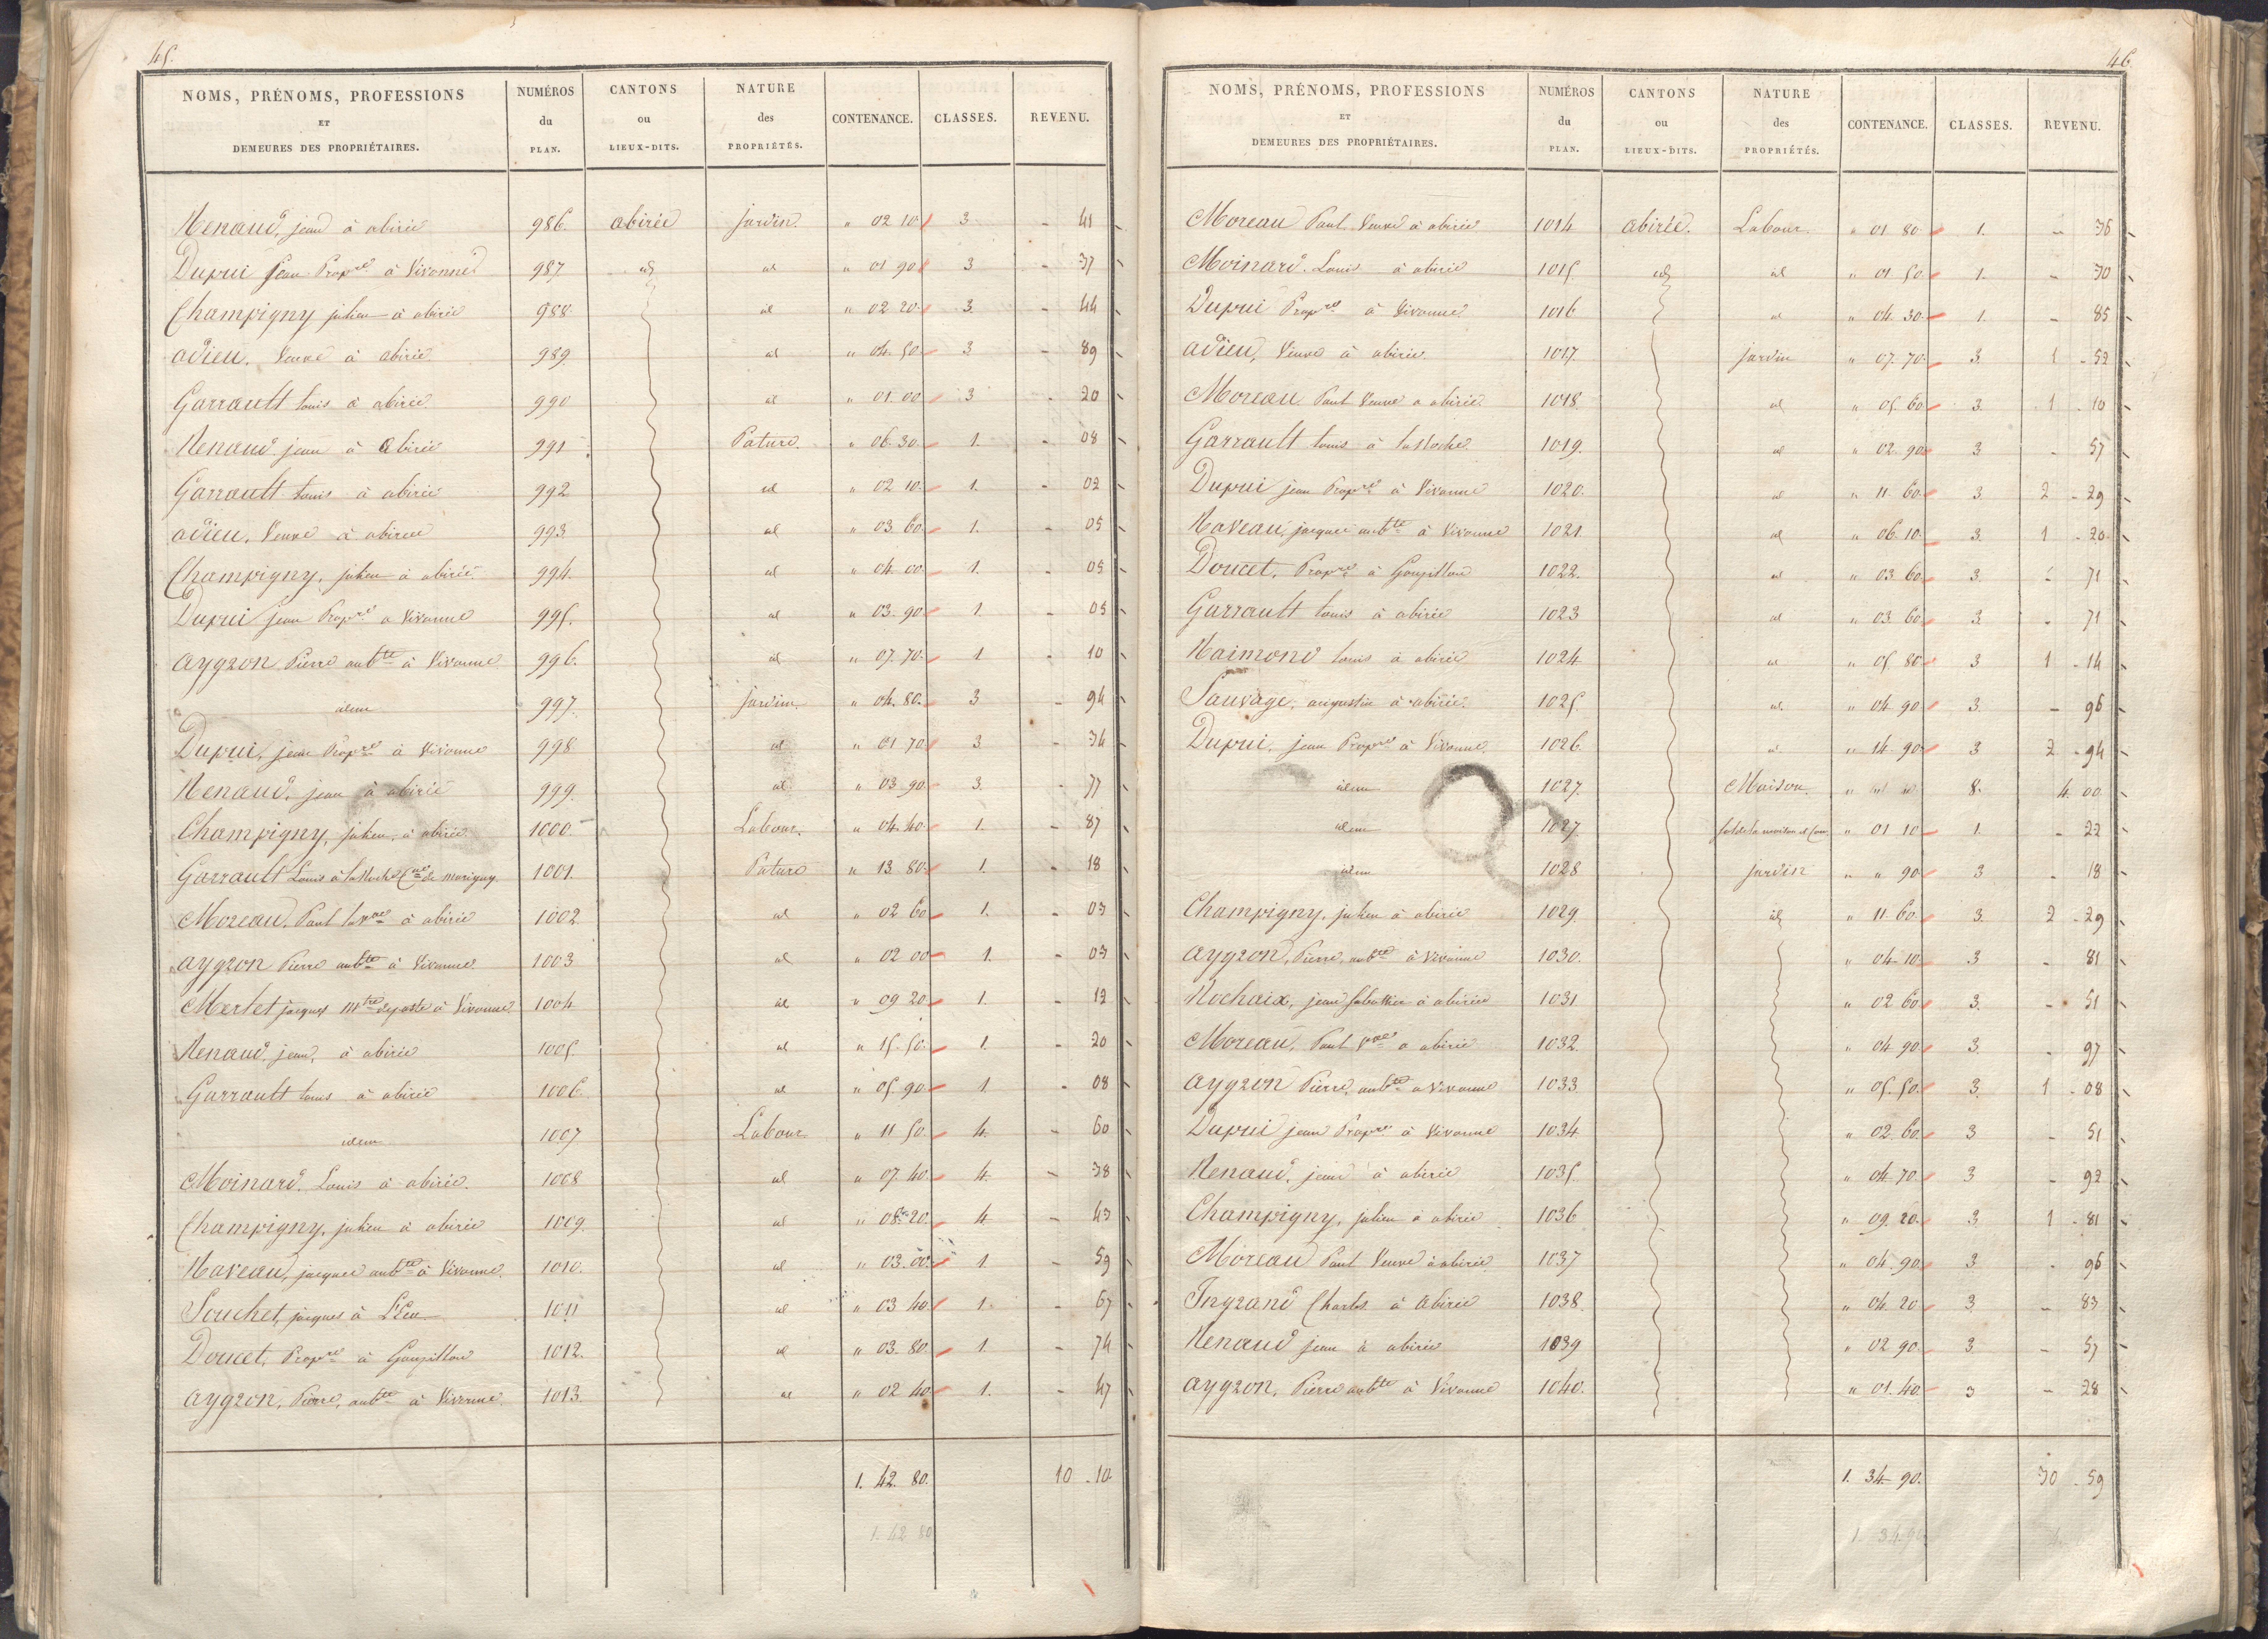 45.
NOMS, PRÉNOMS, PROFESSIONS ET DEMEURES DES PROPRIÉTAIRES. | NUMÉROS du PLAN. | CANTONS ou LIEUX-DITS. | NATURE des PROPRIÉTÉS. | CONTENANCE. | CLASSES. | REVENU.
Renaud, jean à abirée 986 abirée jardin. " 02 10 3 - 41
Dupui jean Propre à Vivonne 987 id id " 01 90 3 - 37
Champigny julien à abirée 988 id " 02 20 3 - 44
adieu. Veuve à abirée 989 id " 04. 50 3 - 89
Garrault louis à abirée 990 id " 01 00 3 - 20
Renaud jean à abirée 991 Pature. " 06. 30 1. - 08
Garrault louis à abirée 992 id " 02 10 1. - 02
adieu, Veuve à abirée 993 id " 03. 60 1. - 05
Champigny, julien à abirée 994 id " 04 00 1. - 05
Dupui jean Propre à Vivonne 995. id " 03. 90 1. - 05
aygron Pierre aubte à Vivonne 996. id " 07. 70 1 - 10
idem 997. Jardin " 04. 80 3 - 94
Dupui, jean Propre à Vivonne 998 id " 01 70 3 - 34
Renaud, jean à abirée 999. id " 03 90 3. - 77
Champigny, julien, à abirée 1000 Labour. " 04. 40 1. - 87
Garrault Louis à la Roche Cne de marigny. 1001. Pature " 13 80 1. - 18
Moreau. Paul la Vve à abirée 1002 id " 02 60 1. - 03
aygron Pierre aubte à Vivonne 1003 id " 02 00 1. - 03
Merlet jacques Mtre de poste à Vivonne 1004 id " 09 20 1. - 12
Renaud, jean, à abirée 1005. id " 15. 50 1. - 20
Garrault louis à abirée 1006 id " 05. 90 1 - 08
idem 1007 Labour " 11 50 4. - 60
Moinard. Louis à abirée. 1008 id " 07. 40 4. - 38
Champigny, julien à abirée 1009. id " 08. 20. 4 - 43
Naveau, jacques aubte à Vivonne. 1010. id " 03. 00 1 - 59
Souchet, jacques à L'Eau 1011 id " 03 40 1. - 67
Doucet, Propre à Goupillon 1012. id " 03. 80 1. - 74
aygron, Pierre, aubte à Vivonne. 1013. id " 02 40 1. - 47
1. 42. 80. 10 . 10
1. 42 80
46
NOMS, PRÉNOMS, PROFESSIONS ET DEMEURES DES PROPRIÉTAIRES. | NUMÉROS du PLAN. | CANTONS ou LIEUX-DITS. | NATURE des PROPRIÉTÉS. | CONTENANCE. | CLASSES. | REVENU.
Moreau Paul. Veuve à abirée 1014 abirée. Labour. " 01 80 1. - 36
Moinard. Louis à abirée 1015 id id " 01 50 1. - 30
Dupui Propre à Vivonne 1016 id " 04. 30 1. - 85
adieu, Veuve à abirée. 1017. jardin " 07. 70 3. 1 - 52
Moreau Paul Veuve a abirée. 1018 id " 05. 60 3. 1 - 10
Garrault louis à la Roche 1019. id " 02. 90 3 - 57
Dupui jean Propre à Vivonne 1020. id " 11. 60 3. 2 - 29
Naveau, jacques aubte à Vivonne 1021. id " 06. 10 3. 1 - 20
Doucet, Propre à Goupillon 1022. id " 03. 60 3. - 71
Garrault louis à abirée 1023 id " 03. 60 3. - 71
Raimond louis à abirée 1024 id " 05. 80 3 1 - 14
Sauvage, augustin à abirée. 1025. id. " 04. 90 3. - 96
Dupui, jean Propre à Vivonne. 1026. id " 14. 90 3 2 - 94
idem 1027. Maison. " " " 8. 4. 00
idem 1027. Sol de la maison et Cour " 01 10 1. - 22
idem 1028 jardin " " 90 3 - 18
Champigny, julien à abirée 1029. id " 11. 60 3. 2 - 29
aygron, Pierre, aubte à Vivonne 1030. " 04. 10 3 - 81
Rochaix, jean sabottier à abirée 1031 " 02. 60 3. - 51
Moreau, Paul Vve a abirée 1032. " 04 90 3. - 97
aygron Pierre, aubte a Vivonne 1033 " 05. 50. 3. 1 - 08
Dupui jean Propre à Vivonne 1034 " 02. 60 3 - 51
Renaud, jean à abirée 1035. " 04 70 3 - 92
Champigny, julien à abirée 1036 " 09. 20 3. 1 - 81
Moreau Paul Veuve à abirée 1037 " 04. 90 3. - 96
Ingrand Charles à abirée 1038. " 04. 20 3. - 83
Renaud jean à abirée 1039 " 02 90 3. - 57
aygron, Pierre aubte à Vivonne 1040. " 01. 40 3 - 28
1. 34. 90. 30 . 59
1 34.90